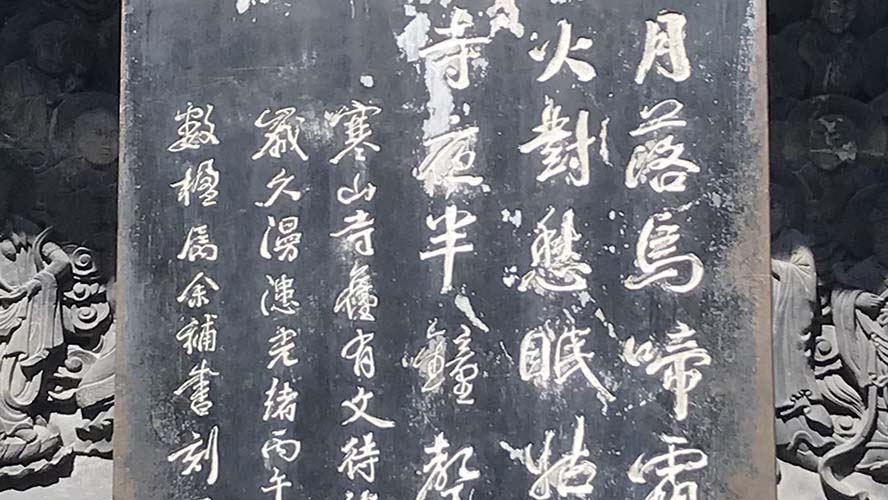 月落烏啼霜
火對愁眠姑
寺夜半鐘聲
寒山寺舊有文待
歲久漫漶光緒丙午
數楹屬余補書刻